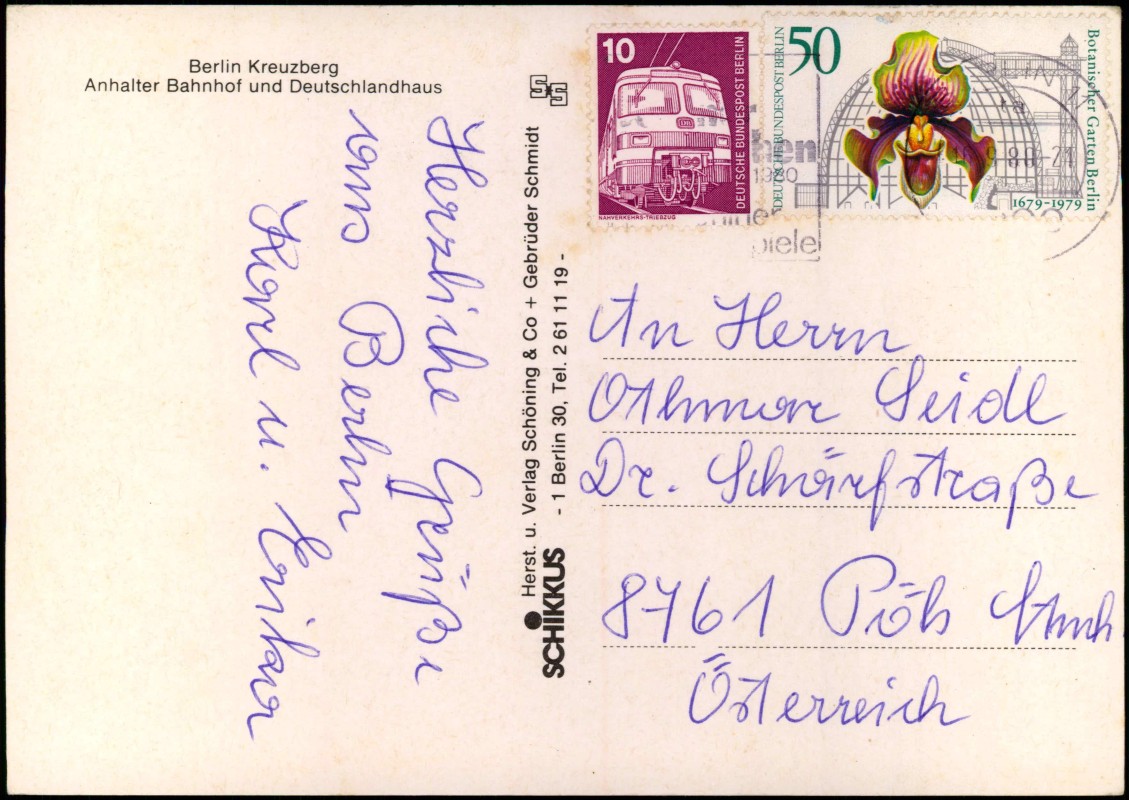 Berlin Kreuzberg
Anhalter Bahnhof und Deutschlandhaus
Herzliche Grüße
aus Berlin
Karl u. Erika
SCHIKKUS
Herst. u. Verlag Schöning & Co + Gebrüder Schmidt
- 1 Berlin 30, Tel. 2 61 11 19 -
10
DEUTSCHE BUNDESPOST BERLIN
NAHVERKEHRS-TRIEBZUG
50
DEUTSCHE BUNDESPOST BERLIN
Botanischer Garten Berlin
1679-1979
1980
piele
An Herrn
Othmar Seidl
Dr. Schärfstraße
8761 Pöls
Österreich